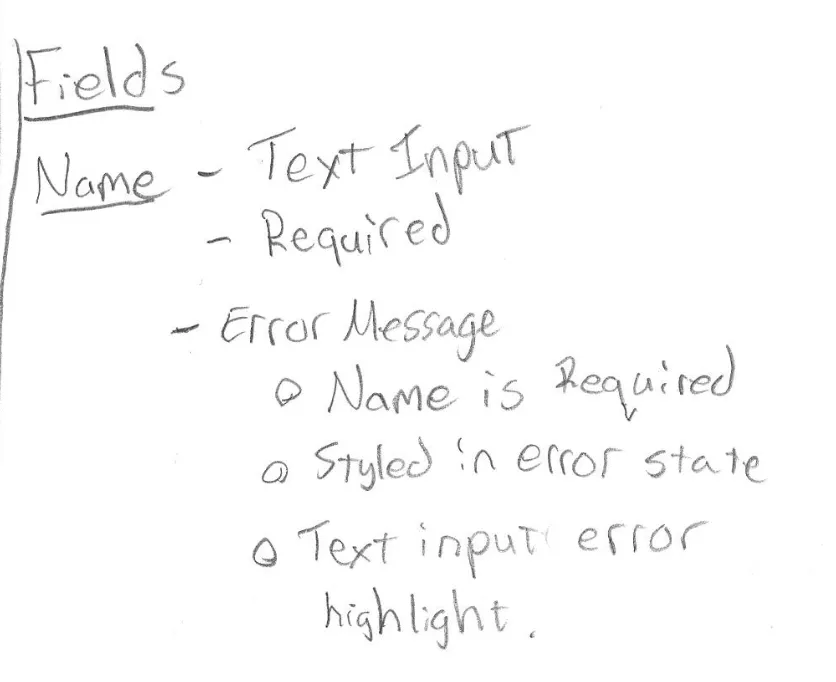 Fields
Name - Text Input
- Required
- Error Message
o Name is Required
o Styled in error state
o Text input error
highlight.